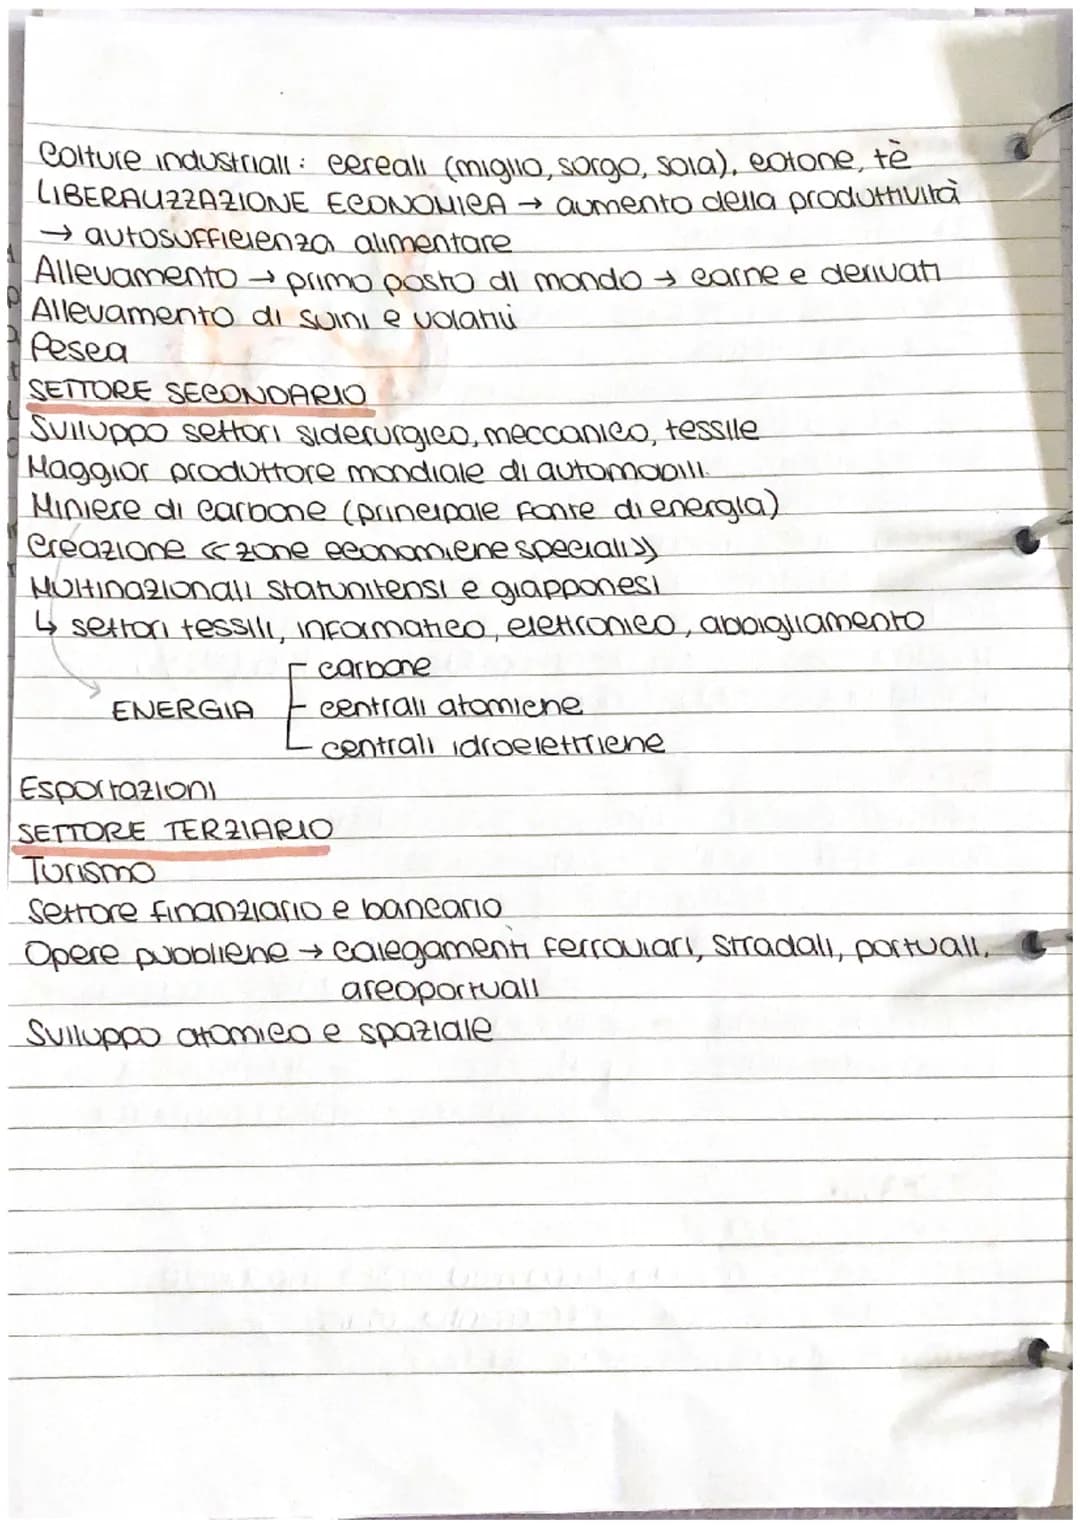 Colture industriali: cereali (miglio, sorgo, soia), cotone, tè
LIBERALIZZAZIONE ECONOMICA → aumento della produttività
→ autosufficienza alimentare
Allevamento → primo posto di mondo → carne e derivati
Allevamento di suini e volatili
Pesca
SETTORE SECONDARIO
Sviluppo settori siderurgico, meccanico, tessile
Maggior produttore mondiale di automobili.
Miniere di carbone (principale fonte di energia)
Creazione «zone economiche speciali»
Multinazionali statunitensi e giapponesi
↳ settori tessili, informatico, elettronico, abbigliamento
carbone
ENERGIA centrali atomiche
centrali idroelettriche
Esportazioni
SETTORE TERZIARIO
Turismo
Settore finanziario e bancario
Opere pubbliche → calegamenti ferroviari, stradali, portuali,
areoportuali
Sviluppo atomico e spaziale